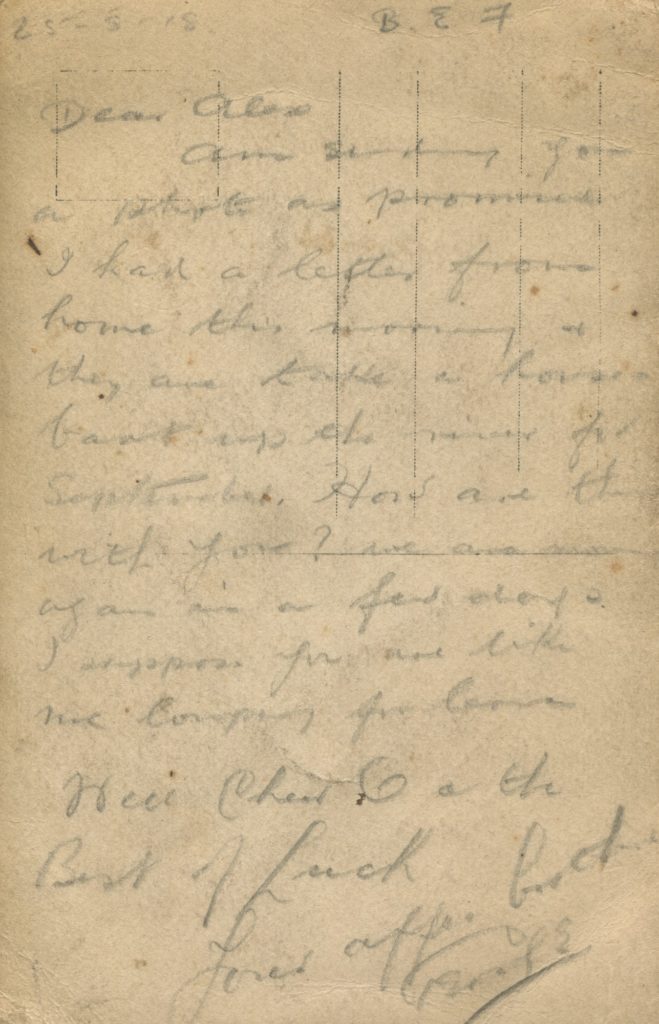 25-8-18 B. E F
Dear Alex
Am sending you
a photo as promised
I had a letter from
home this morning &
they are take a house
boat up the river for
September. How are the
with you? we are
again in a few days
I suppose you are like
me longing for leave
Well Cheer O & the
Best of Luck
Your affec brother